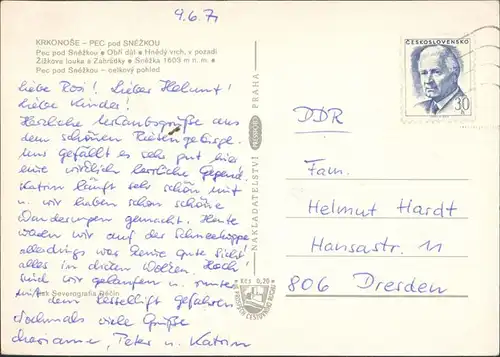 9.6.71
KRKONOŠE – PEC pod SNĚŽKOU
Pec pod Sněžkou • Obří důl • Hnědý vrch, v pozadí
Žižkova louka a Záhrádky • Sněžka 1603 m n. m. •
Pec pod Sněžkou – celkový pohled
liebe Rosi! Lieber Helmut!
liebe Kinder!
Herzliche Urlaubsgrüße aus
dem schönen Riesengebirge.
Uns gefällt es sehr gut hier
eine wirklich herrliche Gegend.
Katrin läuft sehr schön mit
u. wir haben schon schöne
Wanderungen gemacht. Heute
waren wir auf der Schneekoppe
allerdings war keine gute Sicht
alles in dicken Wolken. Hoch
sind wir gelaufen u. runter
mit dem Sessellift gefahren.
Nochmals viele Grüße
Marianne, Peter u. Katrin
Tisk Severografia Děčín
NAKLADATELSTVÍ PRESSFOTO PRAHA
Kčs 0,20
ČESKOSLOVENSKO
30
DDR
Fam.
Helmut Hardt
Hansastr. 11
806 Dresden